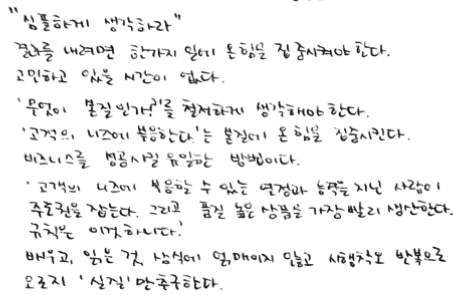 "심플하게 생각하라"
결과를 내려면 한가지 일에 온힘을 집중시켜야 한다.
고민하고 있을 시간이 없다.
'무엇이 본질인가?'를 철저하게 생각해야 한다.
'고객의 니즈에 부응한다.'는 본질에 온 힘을 집중시킨다.
비즈니스를 성공시킬 유일한 방법이다.
'고객의 니즈에 부응할 수 있는 열정과 능력을 지닌 사람이
주도권을 잡는다. 그리고 품질 높은 상품을 가장 빨리 생산한다.
규칙은 이것 하나다.'
배우고, 읽은 것, 상식에 얽매이지 않고 시행착오 반복으로
오로지 '실질'만 추구한다.